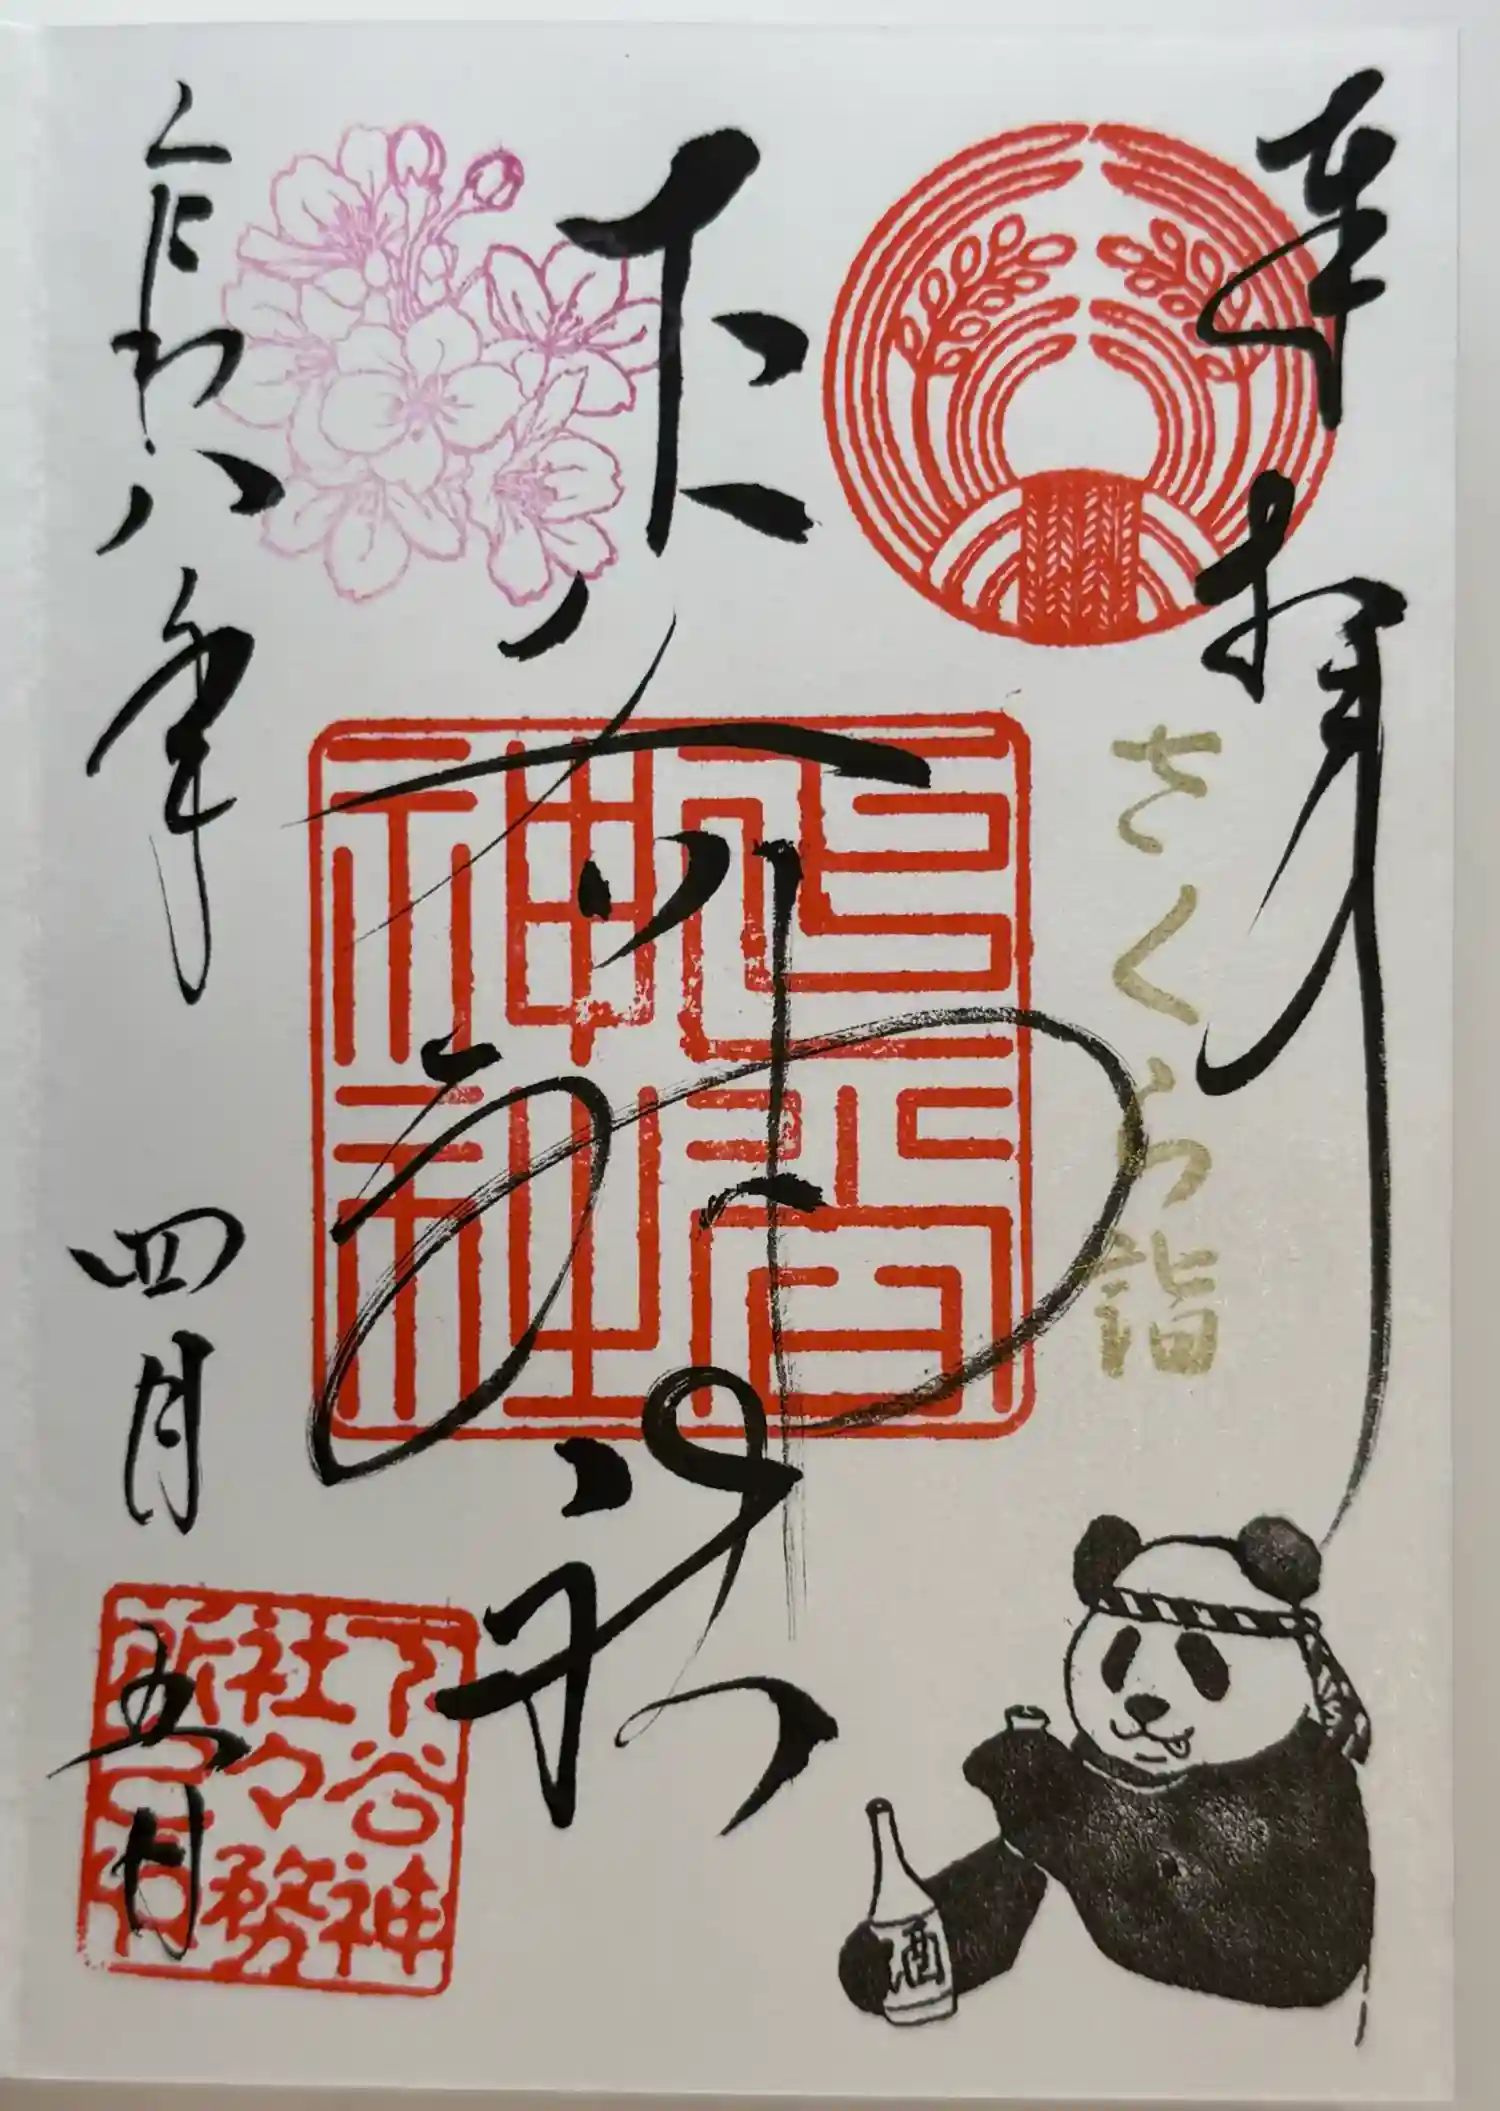 奉拝
さくら詣
下谷神社
下谷
神社
令和八年 四月 五日
下谷神
社々務
所之印
酒